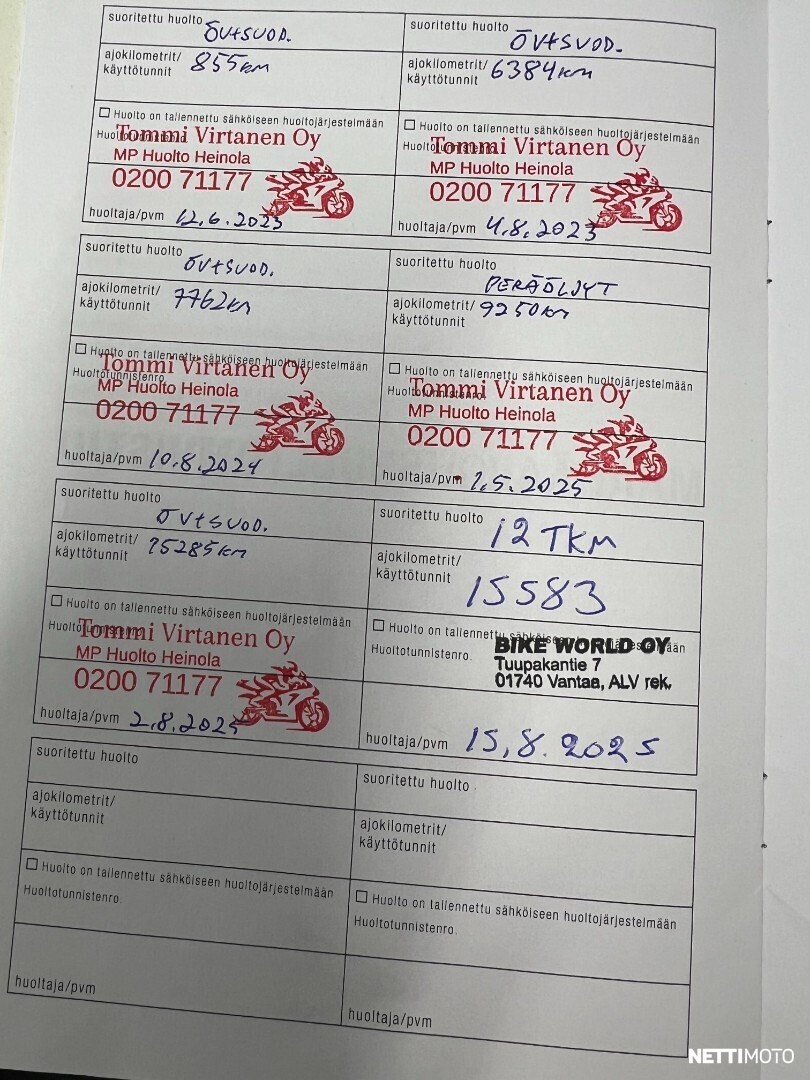 suoritettu huolto ÖV+SUOD.
ajokilometrit/
käyttötunnit 855KM
☐ Huolto on tallennettu sähköiseen huoltojärjestelmään
Huoltotunnistenro.
Tommi Virtanen Oy
MP Huolto Heinola
0200 71177
huoltaja/pvm 12.6.2023
suoritettu huolto ÖV+SUOD.
ajokilometrit/
käyttötunnit 6384KM
☐ Huolto on tallennettu sähköiseen huoltojärjestelmään
Huoltotunnistenro.
Tommi Virtanen Oy
MP Huolto Heinola
0200 71177
huoltaja/pvm 4.8.2023
suoritettu huolto ÖV+SUOD.
ajokilometrit/
käyttötunnit 7762KM
☐ Huolto on tallennettu sähköiseen huoltojärjestelmään
Huoltotunnistenro.
Tommi Virtanen Oy
MP Huolto Heinola
0200 71177
huoltaja/pvm 10.8.2024
suoritettu huolto PERÄÖLJYT
ajokilometrit/
käyttötunnit 9250KM
☐ Huolto on tallennettu sähköiseen huoltojärjestelmään
Huoltotunnistenro.
Tommi Virtanen Oy
MP Huolto Heinola
0200 71177
huoltaja/pvm 1.5.2025
suoritettu huolto ÖV+SUOD.
ajokilometrit/
käyttötunnit 15285KM
☐ Huolto on tallennettu sähköiseen huoltojärjestelmään
Huoltotunnistenro.
Tommi Virtanen Oy
MP Huolto Heinola
0200 71177
huoltaja/pvm 2.8.2025
suoritettu huolto 12 TKM
ajokilometrit/
käyttötunnit 15583
☐ Huolto on tallennettu sähköiseen huoltojärjestelmään
Huoltotunnistenro.
BIKE WORLD OY
Tuupakantie 7
01740 Vantaa, ALV rek.
huoltaja/pvm 15.8.2025
suoritettu huolto
ajokilometrit/
käyttötunnit
☐ Huolto on tallennettu sähköiseen huoltojärjestelmään
Huoltotunnistenro.
huoltaja/pvm
suoritettu huolto
ajokilometrit/
käyttötunnit
☐ Huolto on tallennettu sähköiseen huoltojärjestelmään
Huoltotunnistenro.
huoltaja/pvm
NETTIMOTO